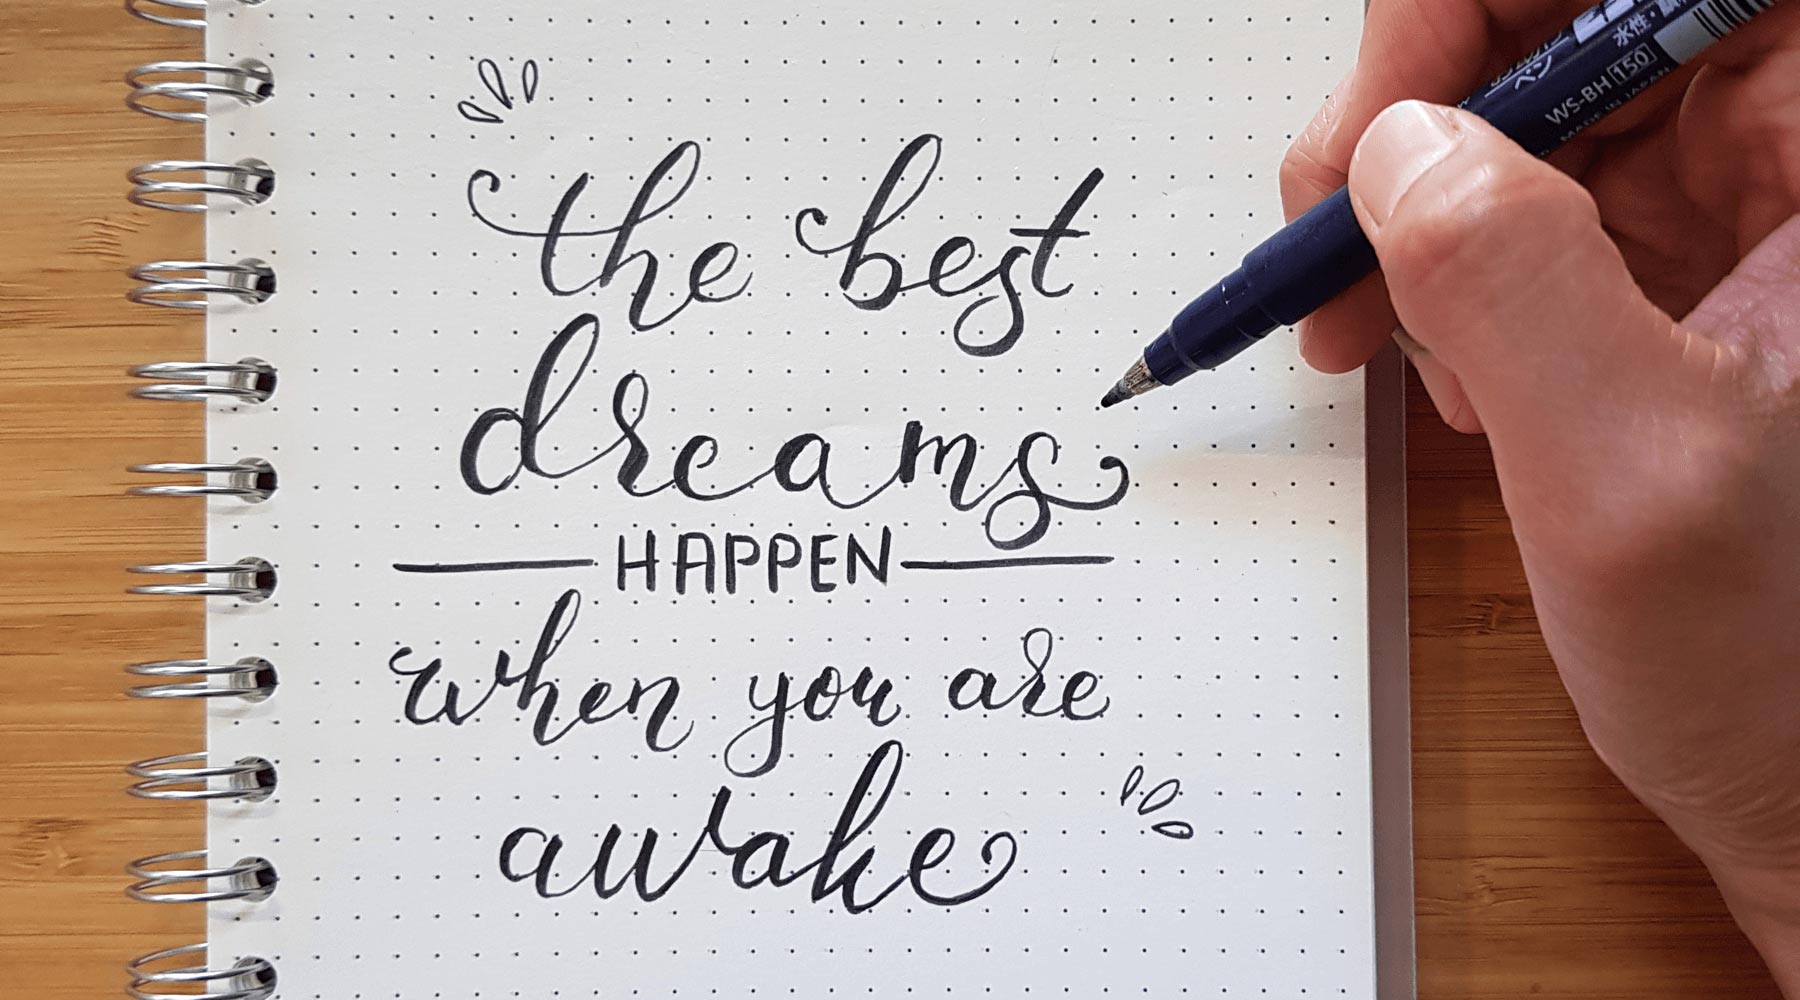 the best
dreams
HAPPEN
when you are
awake
水性
WS-BH 150
MADE IN JAPAN